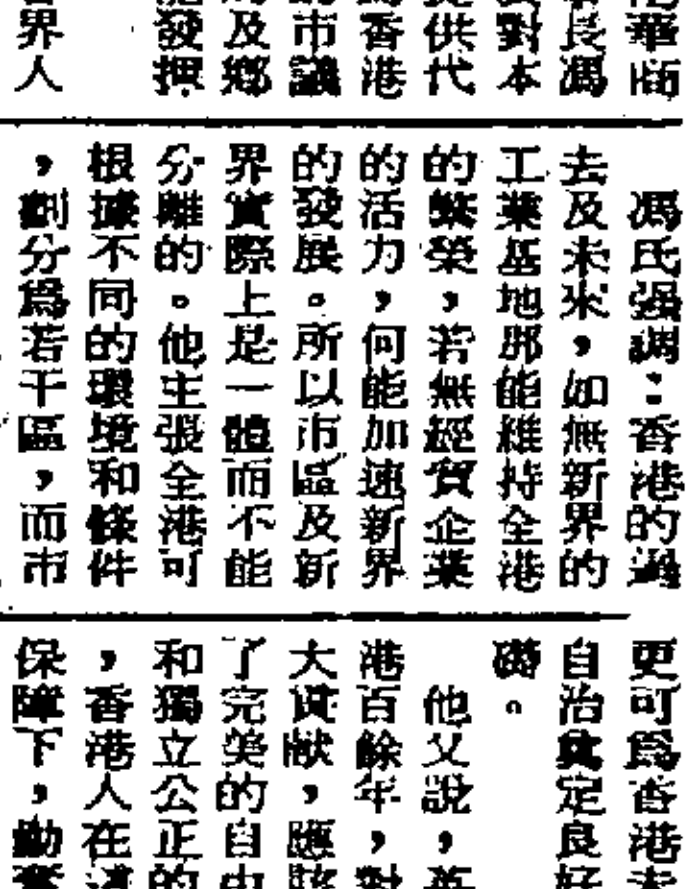 華商
長馮
對本
供代
香港
市議
及鄉
發押
界人
馮氏强調：香港的過
去及未來，如無新界的
工業基地那能維持全港
的繁榮，若無經貿企業
的活力，何能加速新界
的發展。所以市區及新
界實際上是一體而不能
分離的。他主張全港可
根據不同的環境和條件
，劃分爲若干區，而市
更可爲香港
自治奠定良好
礎。
他又說，英
港百餘年，對
大貢献，應該
了完美的自由
和獨立公正的
，香港人在這
保障下，勤奮